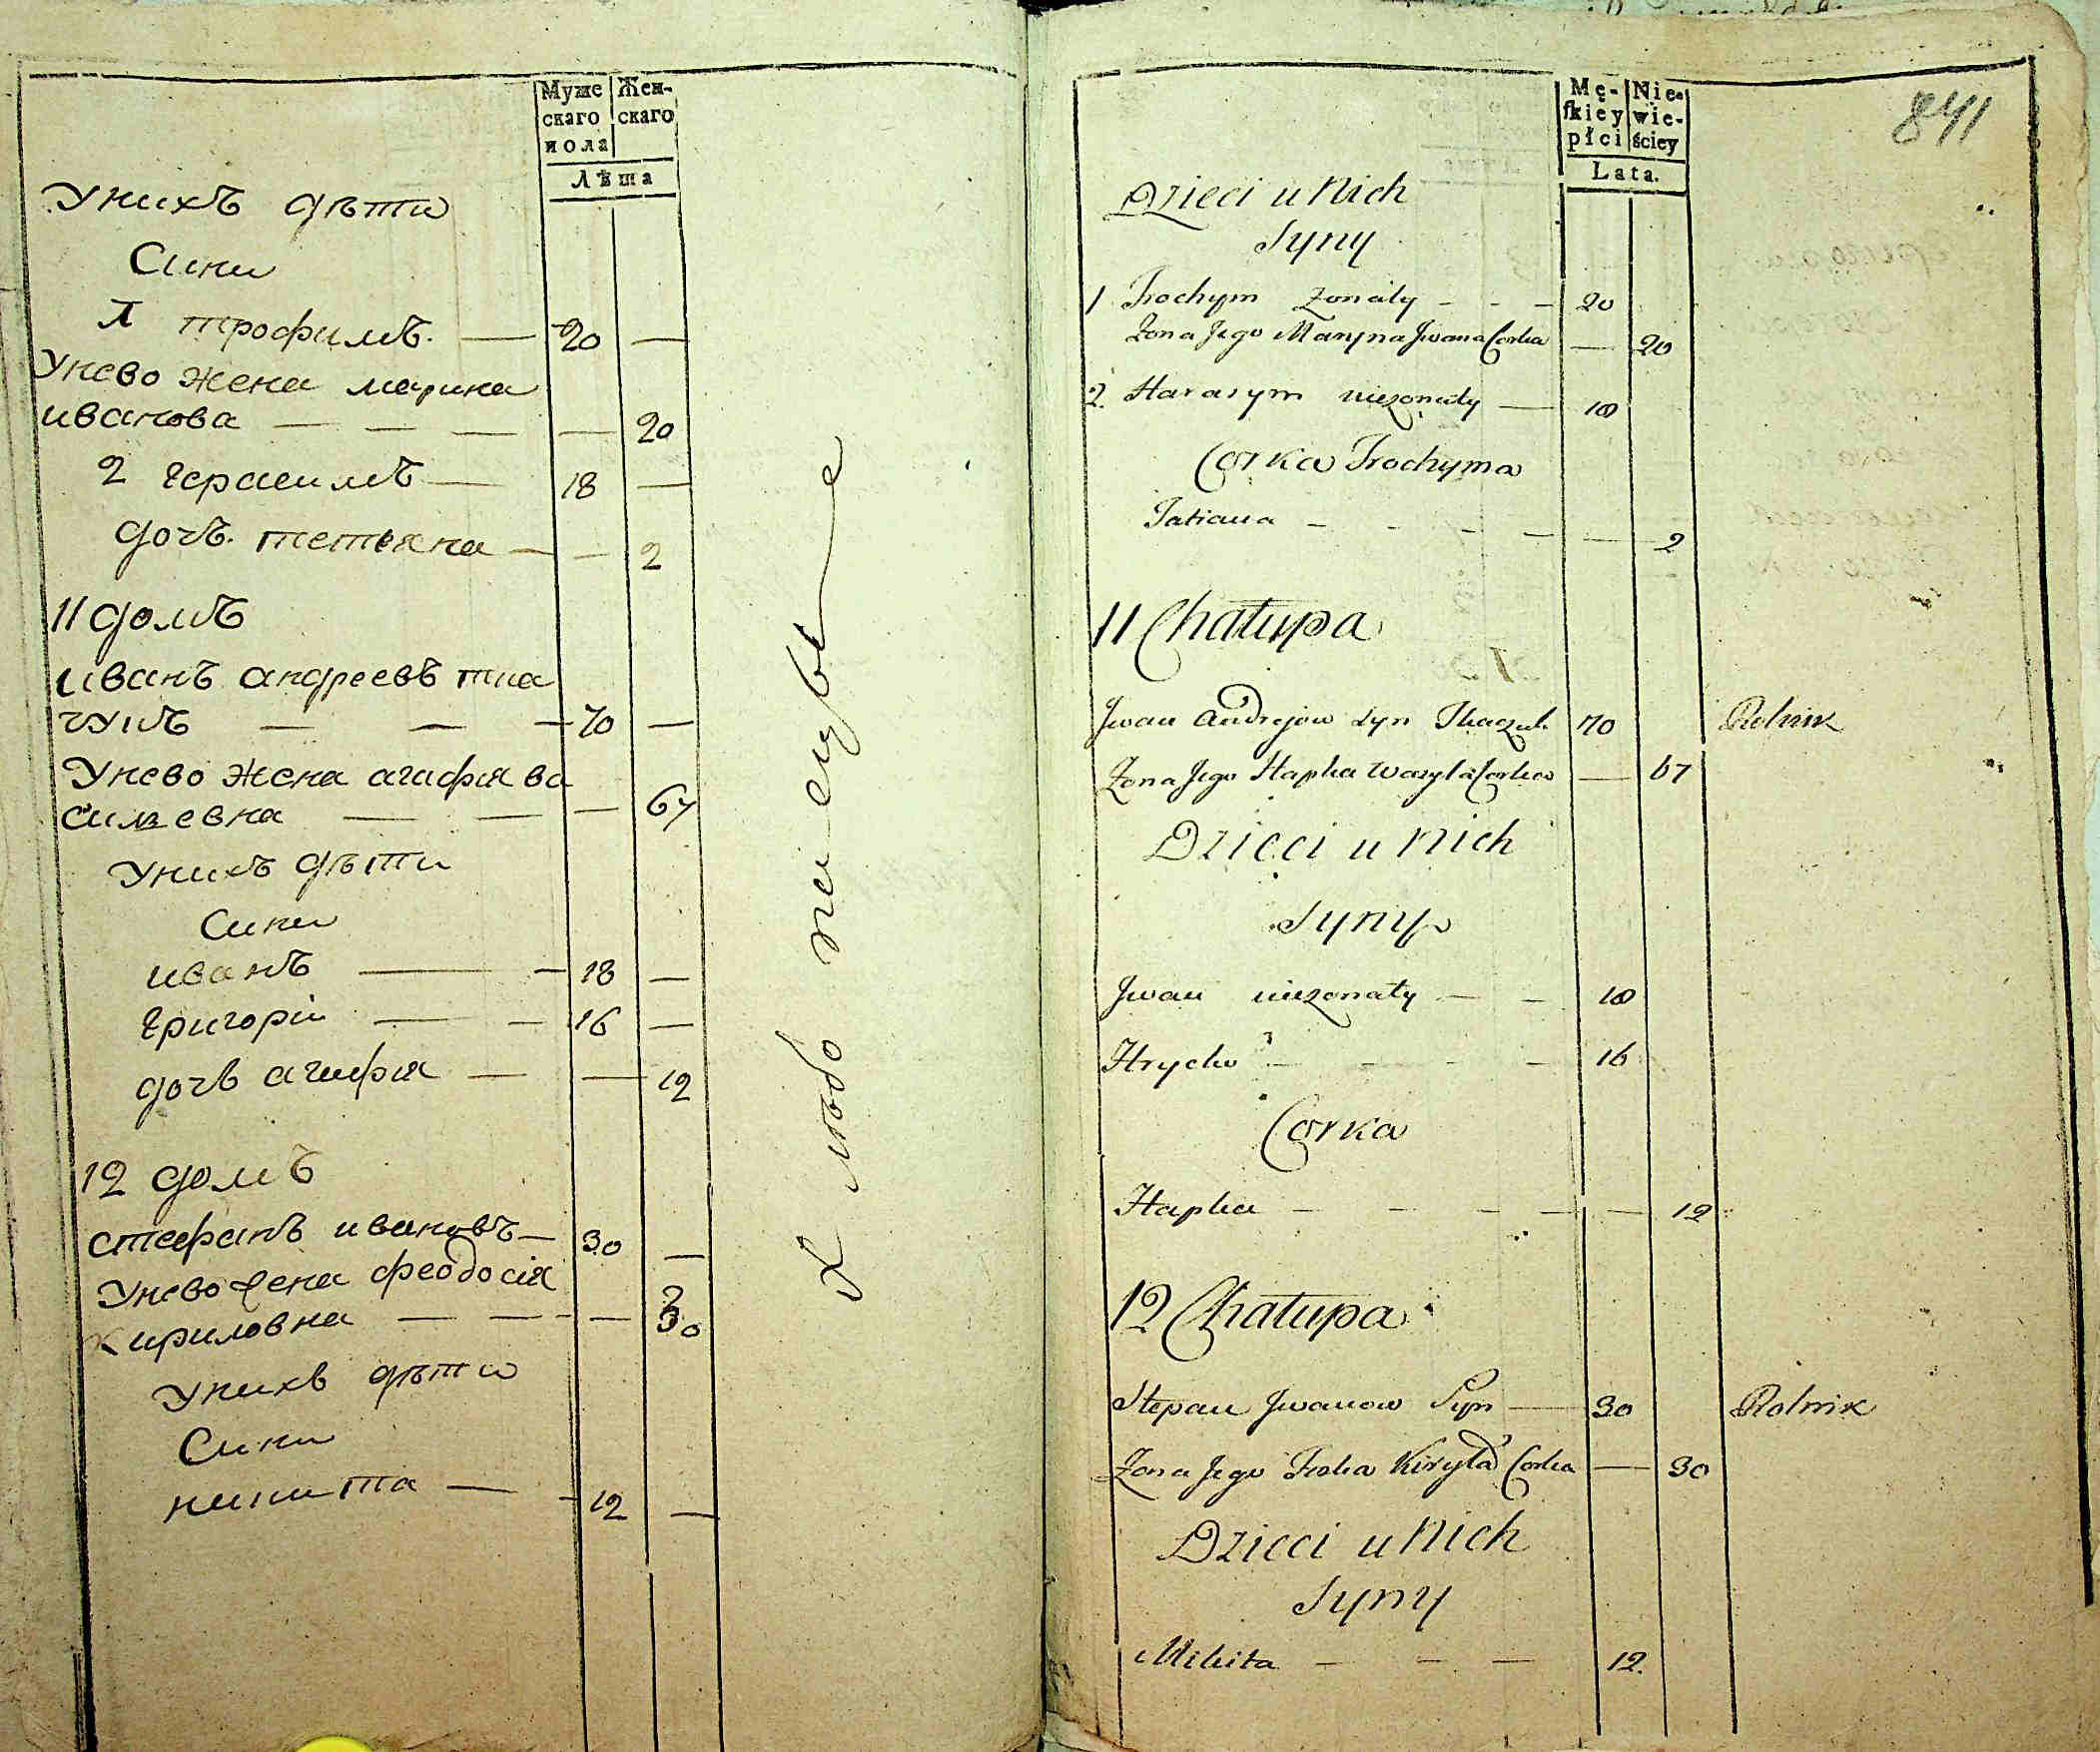 Муже
скаго
пола
Жен-
скаго
Лѣта
Унихъ дѣти
Сини
1 трофимъ. — 20 —
Унево жена марина
иванова — — — — 20
2 Герасимъ — 18 —
дочъ. тетяна — — 2
11 домъ
иванъ андреевъ тка
чукъ — — — 70 —
Унево жена агафия ва
силевна — — — 67
Унихъ дѣти
Сини
иванъ — — 18 —
Григорій — — 16 —
дочъ агафия — — 12
12 домъ
стефанъ ивановъ — 30 —
Унево жена феодосія
кириловна — — — 30
Унихъ дѣти
Сини
никита — — 12 —
841
Mę-
skiey
płci
Nie-
wie-
ściey
Lata.
Dzieci u Nich
Syny
1 Trochym Zonaty - - - 20
Zona Jego Maryna Jwana Corka — 20
2. Harasym niezonaty — 18
Corka Trochyma
Tatiana - - - - — 2
11 Chałupa
Jwan Andrejow syn Tkaczuk 70 Rolnik
Zona Jego Hapka Wasyla Corka — 67
Dzieci u Nich
Syny
Jwan niezonaty — - 18
Hrycko - - - - 16
Corka
Hapka - - - - — 12
12 Chałupa
Stepan Jwanow Syn — 30 Rolnik
Zona Jego Feska Kiryła Corka — 30
Dzieci u Nich
Syny
Mikita - - — 12.